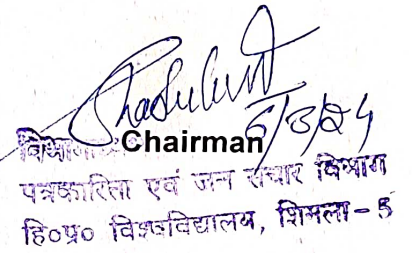 6/3/24
Chairman
पत्रकारिता एवं जन संचार विभाग
हि०प्र० विश्वविद्यालय, शिमला - 5